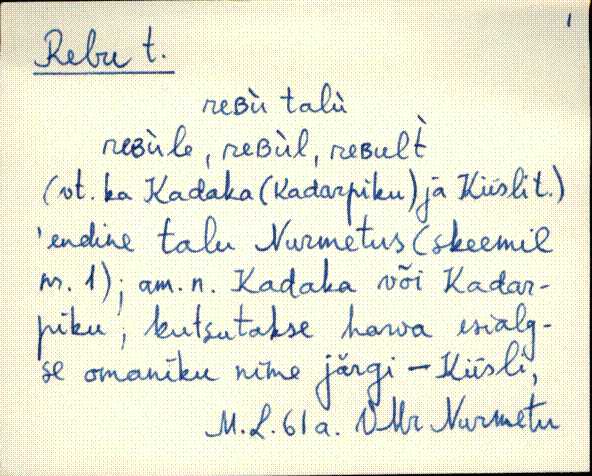 1
Rebu t.
reʙù talù
reʙùle, reʙùl, reʙult̀
(vt. ka Kadaka (Kadarpiku) jā Kiislit.)
'endine talu Nurmetus (skeemil
nr. 1); am. n. Kadaka või Kadar-
piku; kutsutakse harva esialg-
se omaniku nime järgi – Kiisli,
M.L. 61 a. VMr Nurmetu